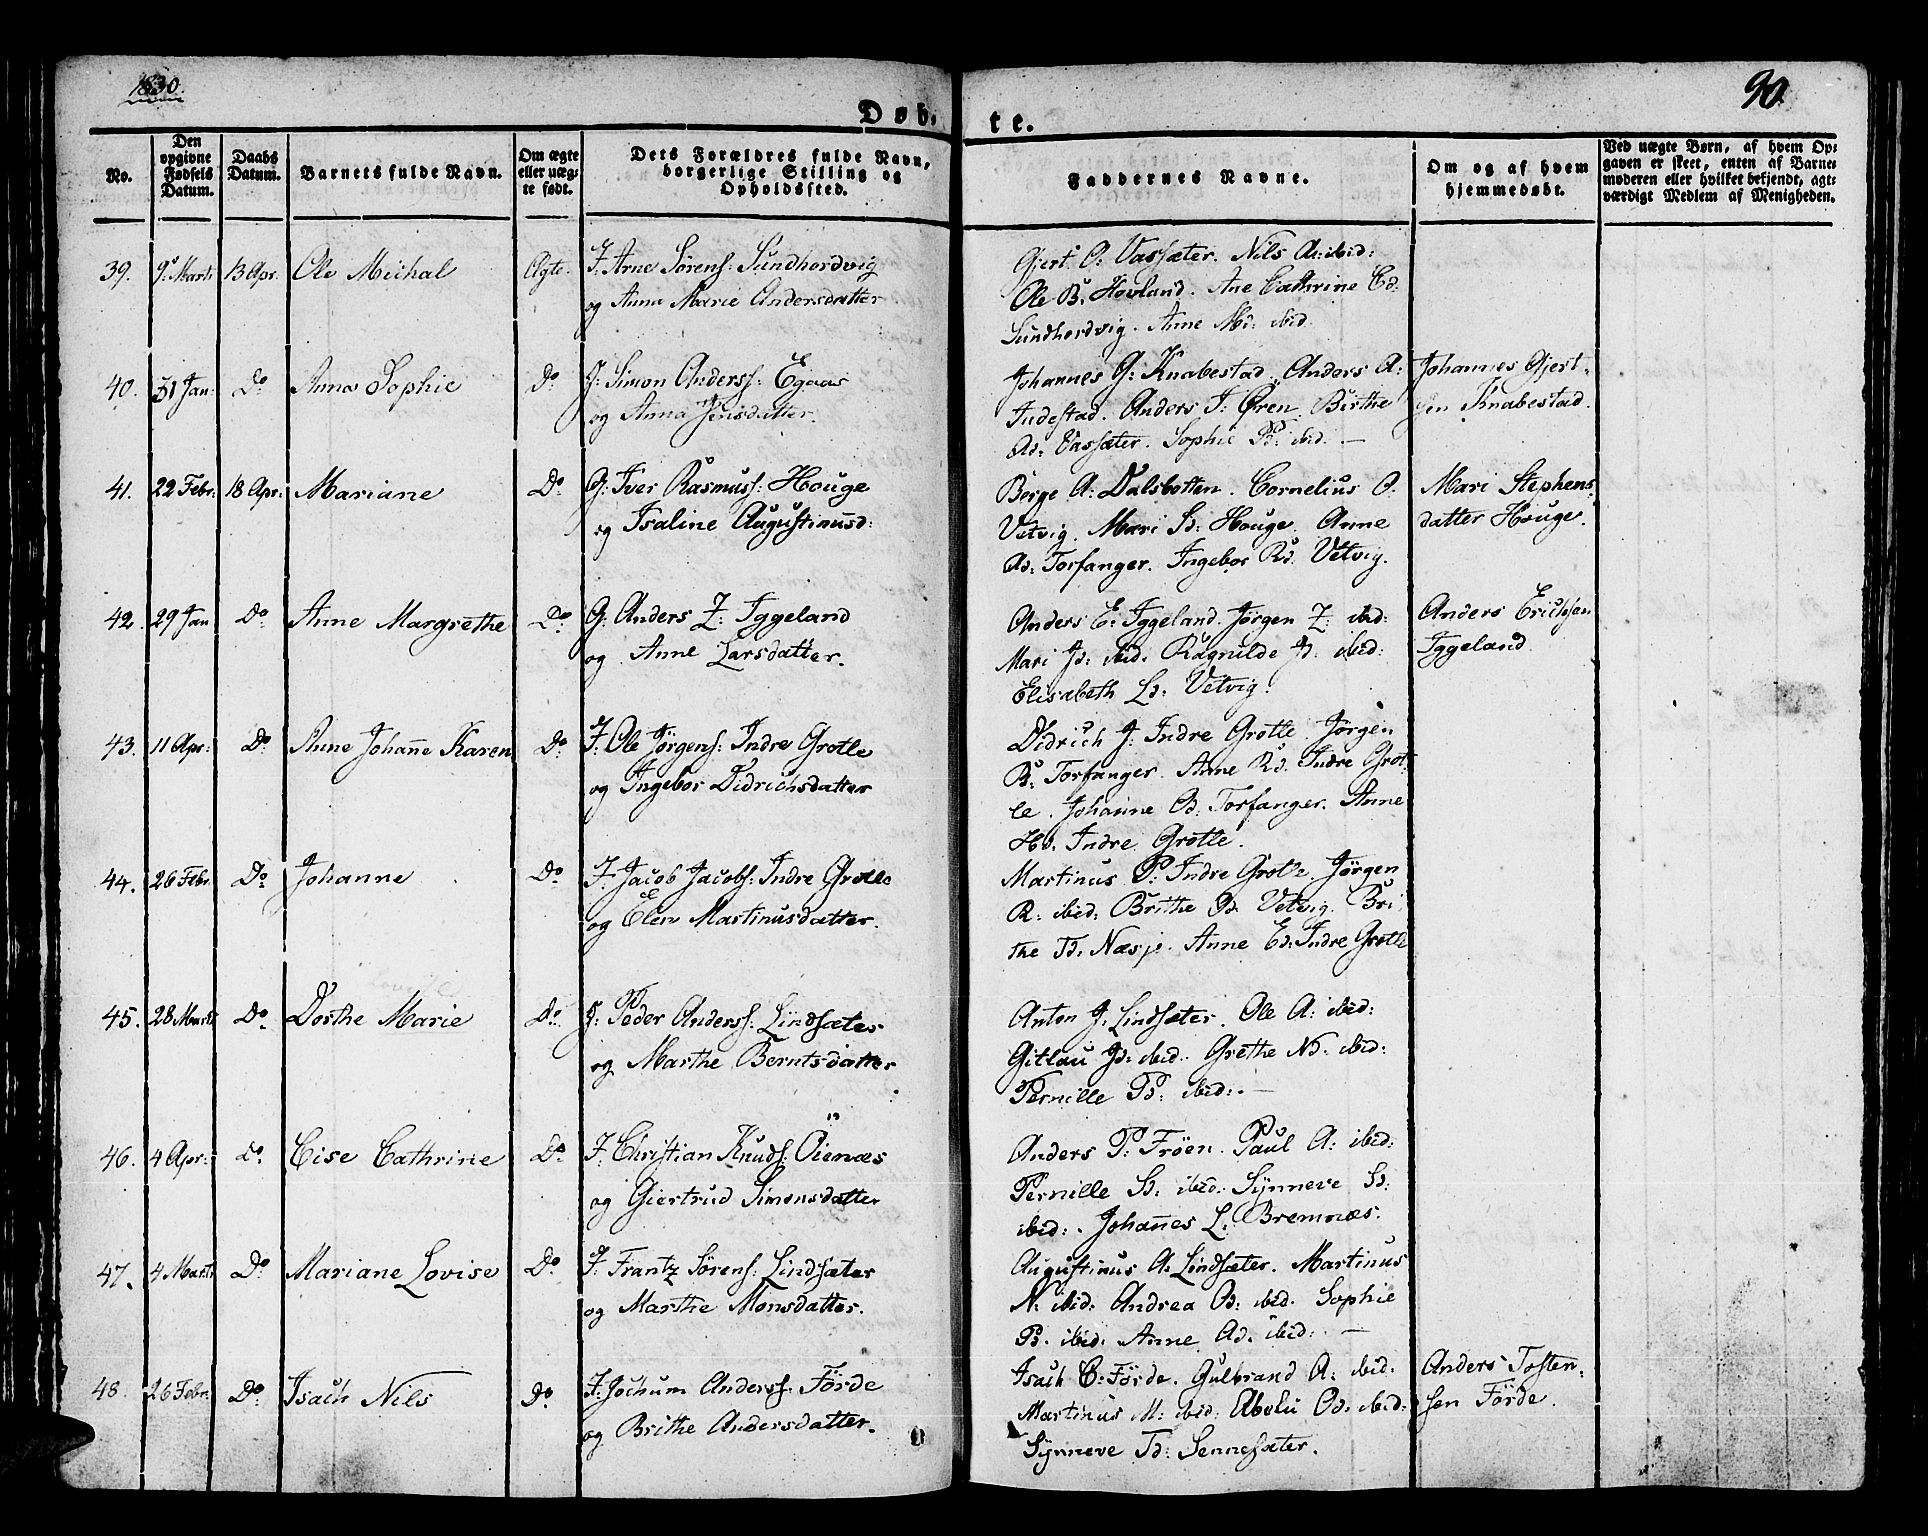 1830.
90
Døb-
te.
No.
Den opgivne Fødsels Datum.
Daabs Datum.
Barnets fulde Navn.
Om ægte eller uæg- te født.
Dets Forældres fulde Navn, borgerlige Stilling og Opholdssted.
Faddernes Navne.
Om og af hvem hjemmedøbt.
Ved uægte Børn, af hvem Op- gaven er skeet, enten af Barne- moderen eller hvilket bekjendt, agt- værdigt Medlem af Menigheden.
39. 9. Marti 13 Apr. Ole Michal Ægte. J. Arne Sørens: Sundhordvig
og Anna Marie Andersdatter
Gjert O: Vassæter. Nils A: ibid:
Ole B. Hovland. Ane Cathrine Ed.
Sundhordvig. Anne Md: ibid.
40. 31 Jan: Do Anna Sophie Do J: Simon Anderss: Egaas
og Anna Jensdatter.
Johannes G: Knabestad. Anders A:
Indestad. Anders J: Øren. Birthe
Ad: Vassæter. Sophie Pd: ibid. —
Johannes Gjert-
sen Knabestad.
41. 22 Febr: 18 Apr: Mariane Do G: Iver Rasmuss: Houge
og Isaline Augustinusd:
Berge A: Dalsbotten. Cornelius O:
Vetvig. Mari Sd: Houge. Anne
Ad: Torfanger. Ingebor Rd. Vetvig.
Mari Stephens-
datter Houge.
42. 29 Jan Do Anne Margrethe Do G: Anders Z: Iggeland
og Anne Larsdatter.
Anders E: Iggeland. Jørgen Z: ibid:
Mari Jd: ibid: Ragnilde Jd: ibid:
Elisabeth Ld: Vetvig.
Anders Erichsen
Iggeland
43. 11 Apr: Do Anne Johanne Karen Do J: Ole Jørgens: Indre Grotle
og Ingebor Didrichsdatter
Didrich J: Indre Grotle. Jørgen
R: Torfanger. Anne Rd. Indre Grot-
le. Johanne Od: Torfanger. Anne
Hd. Indre Grotle.
44. 26 Febr. Do Johanne Do J: Jacob Jacobs: Indre Grotle
og Elen Martinusdatter.
Martinus P: Indre Grotle. Jørgen
R: ibid: Brithe Od. Vetvig. Bri-
the Td: Næsje. Anne Ed: Indre Grotle
45. 28 Marti Do Dorthe Marie Do J: Peder Anderss: Lindsæter
og Marthe Berntsdatter
Anton J: Lindsæter. Ole A: ibid:
Gitlau Jd: ibid: Grethe Nd: ibid:
Pernille Pd: ibid:. —
46. 4 Apr: Do Cise Cathrine Do J: Christian Knuds: Öienæs
og Giertrud Simonsdatter
Anders P: Frøen. Paul A: ibid:
Pernille Sd: ibid: Synneve Sd:
ibid:. Johannes L: Bremnæs.
47. 4 Marti Do Mariane Lovise Do J: Frantz Sørens: Lindsæter
og Marthe Monsdatter.
Augustinus A: Lindsæter. Martinus
N: ibid: Andrea Od: ibid. Sophie
Pd. ibid: Anne Ad. ibid: —
48 26 Febr: Do Isach Nils Do J: Jochum Anderss: Förde
og Brithe Andersdatter.
Isach C: Förde. Gulbrand A: ibid:
Martinus M: ibid: Abelu Od: ibid:
Synneve Td: Sennesæter.
Anders Tosten-
sen Förde.